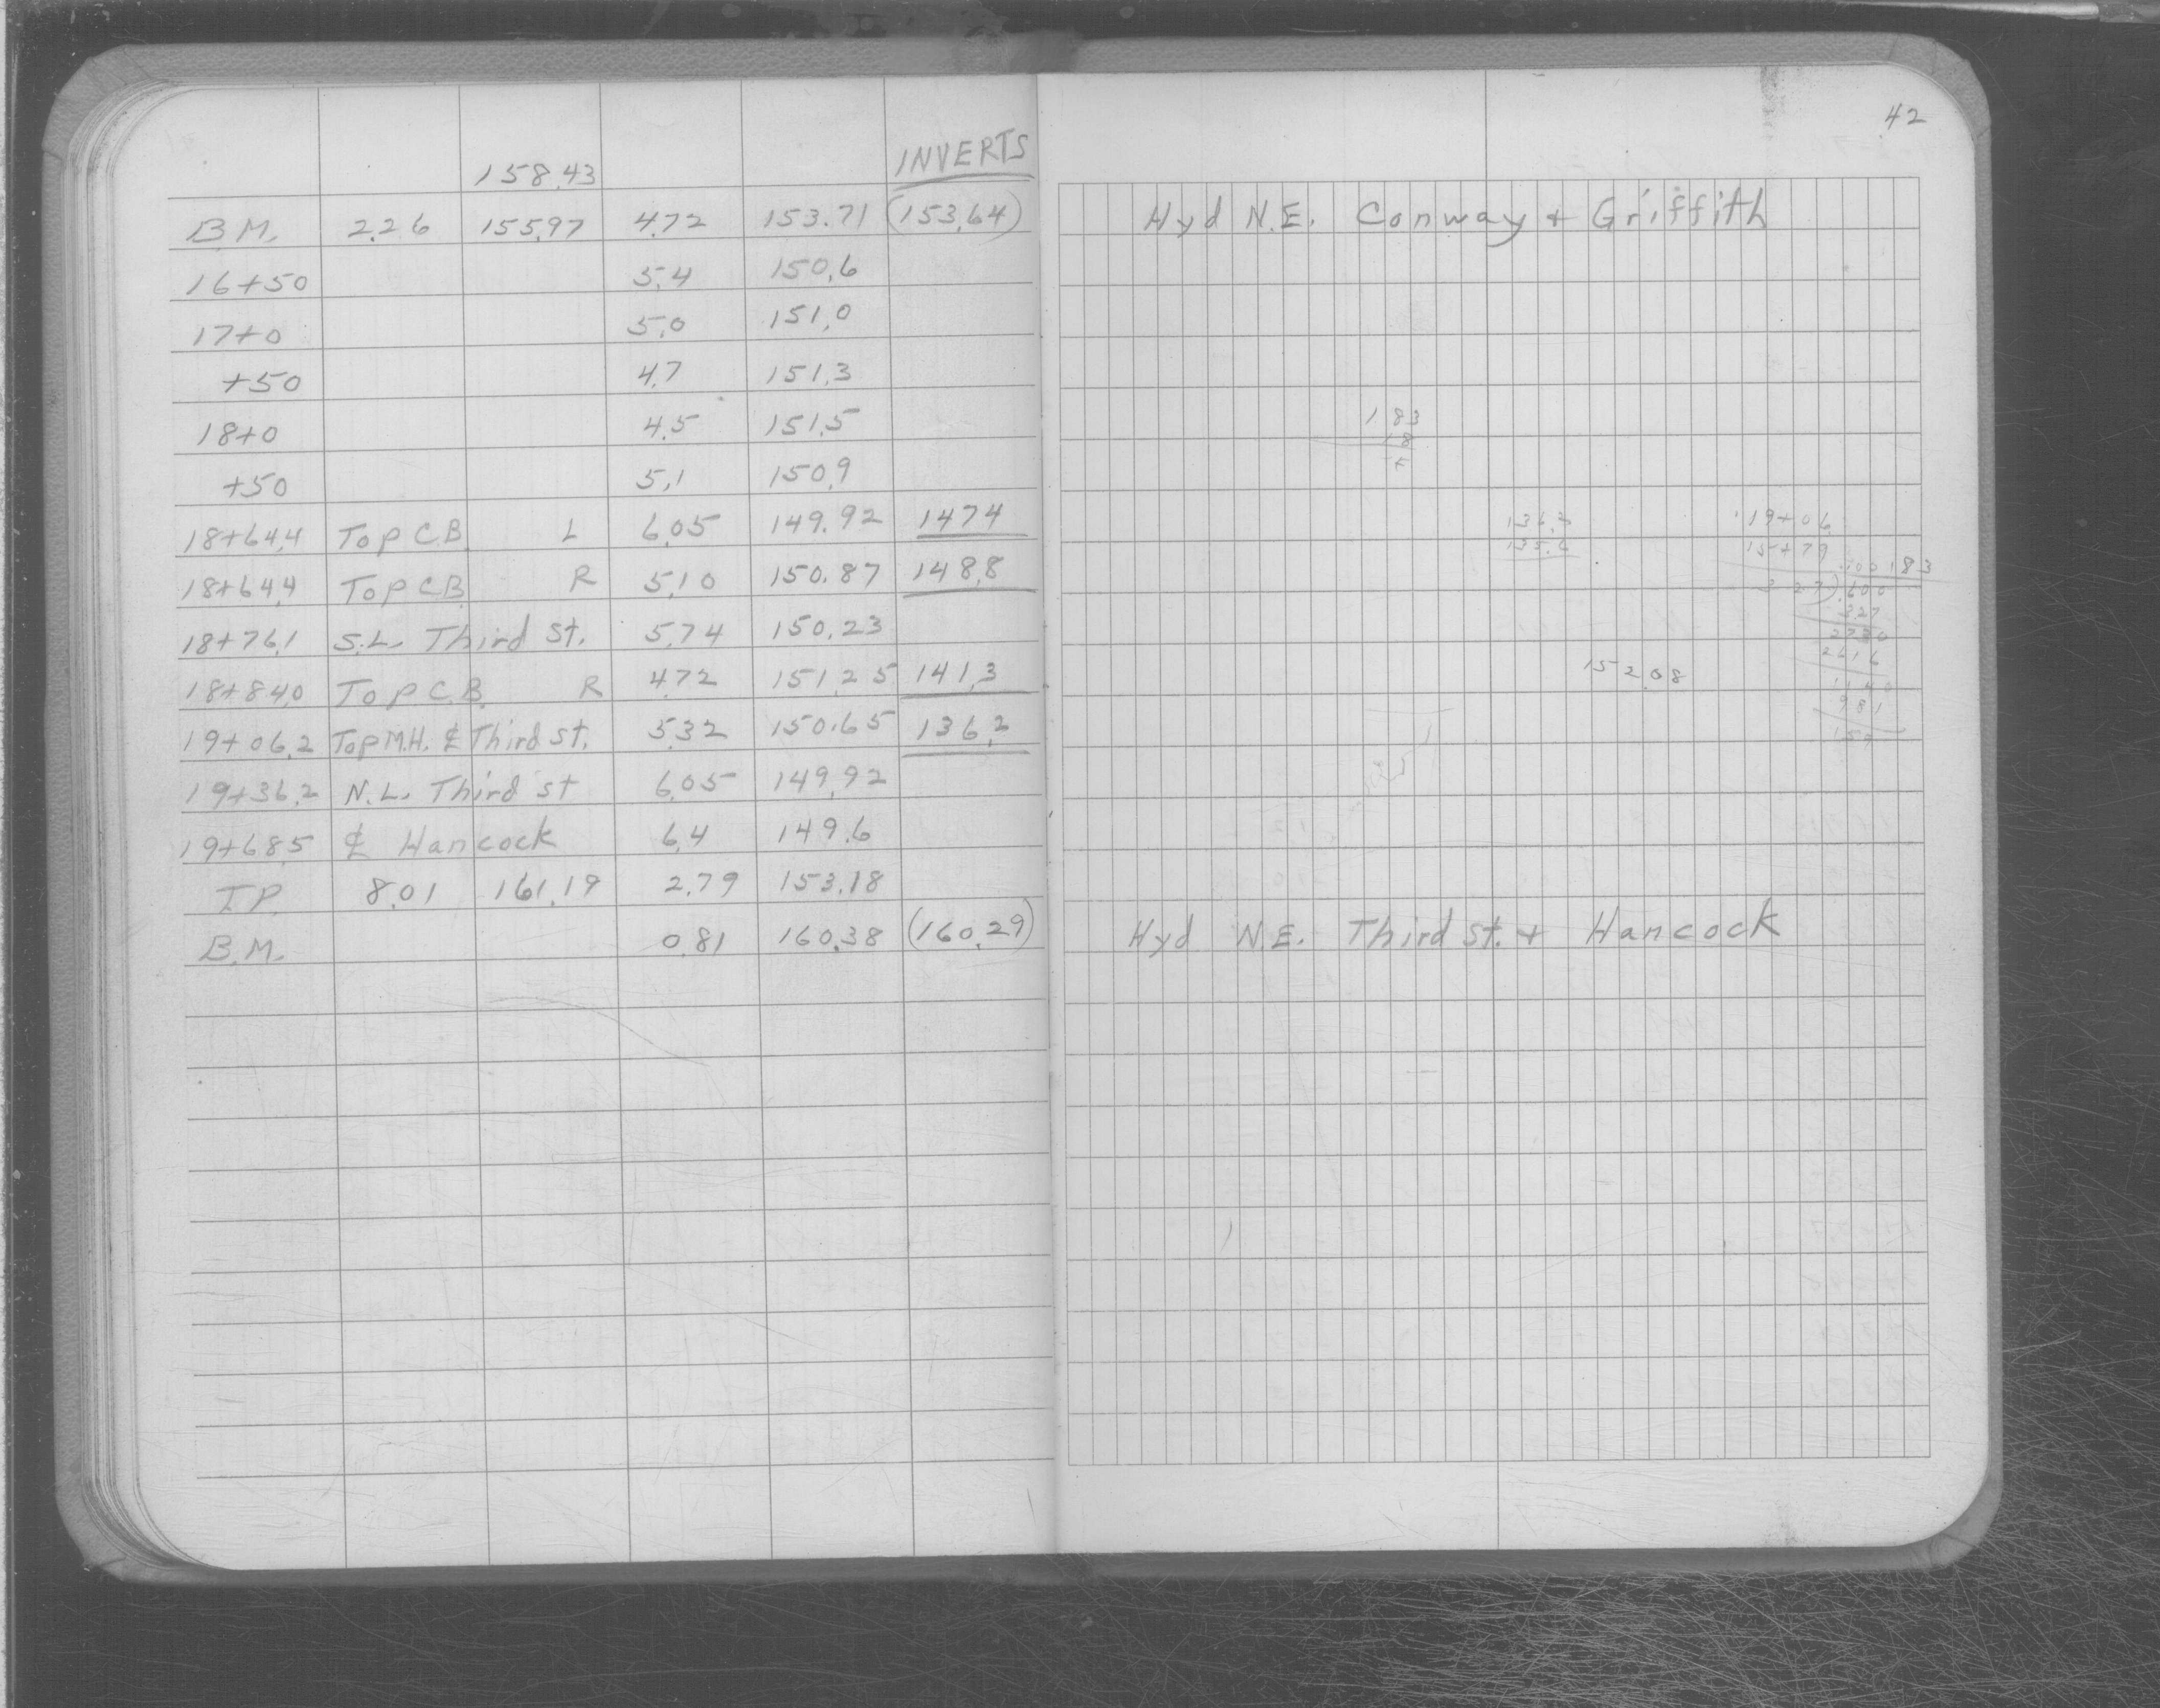 42
INVERTS
158.43
B.M. 2.26 155.97 4.72 153.71 (153.64) Hyd N.E. Conway + Griffith
16+50 5.4 150.6
17+0 5.0 151.0
+50 4.7 151.3
18+0 4.5 151.5
+50 5.1 150.9
18+64.4 Top C.B. L 6.05 149.92 147.4
18+64.4 Top C.B. R 5.10 150.87 148.8
18+76.1 S.L. Third St. 5.74 150.23
18+84.0 Top C.B. R 4.72 151.25 141.3
19+06.2 Top M.H. ℄ Third St. 5.32 150.65 136.2
19+36.2 N.L. Third st 6.05 149.92
19+68.5 ℄ Hancock 6.4 149.6
T.P. 8.01 161.19 2.79 153.18
B.M. 0.81 160.38 (160.29) Hyd N.E. Third St. + Hancock
183
18
136.2
135.6
19+06
15+79
.00183
327).600
327
2730
2616
1140
981
159
152.08